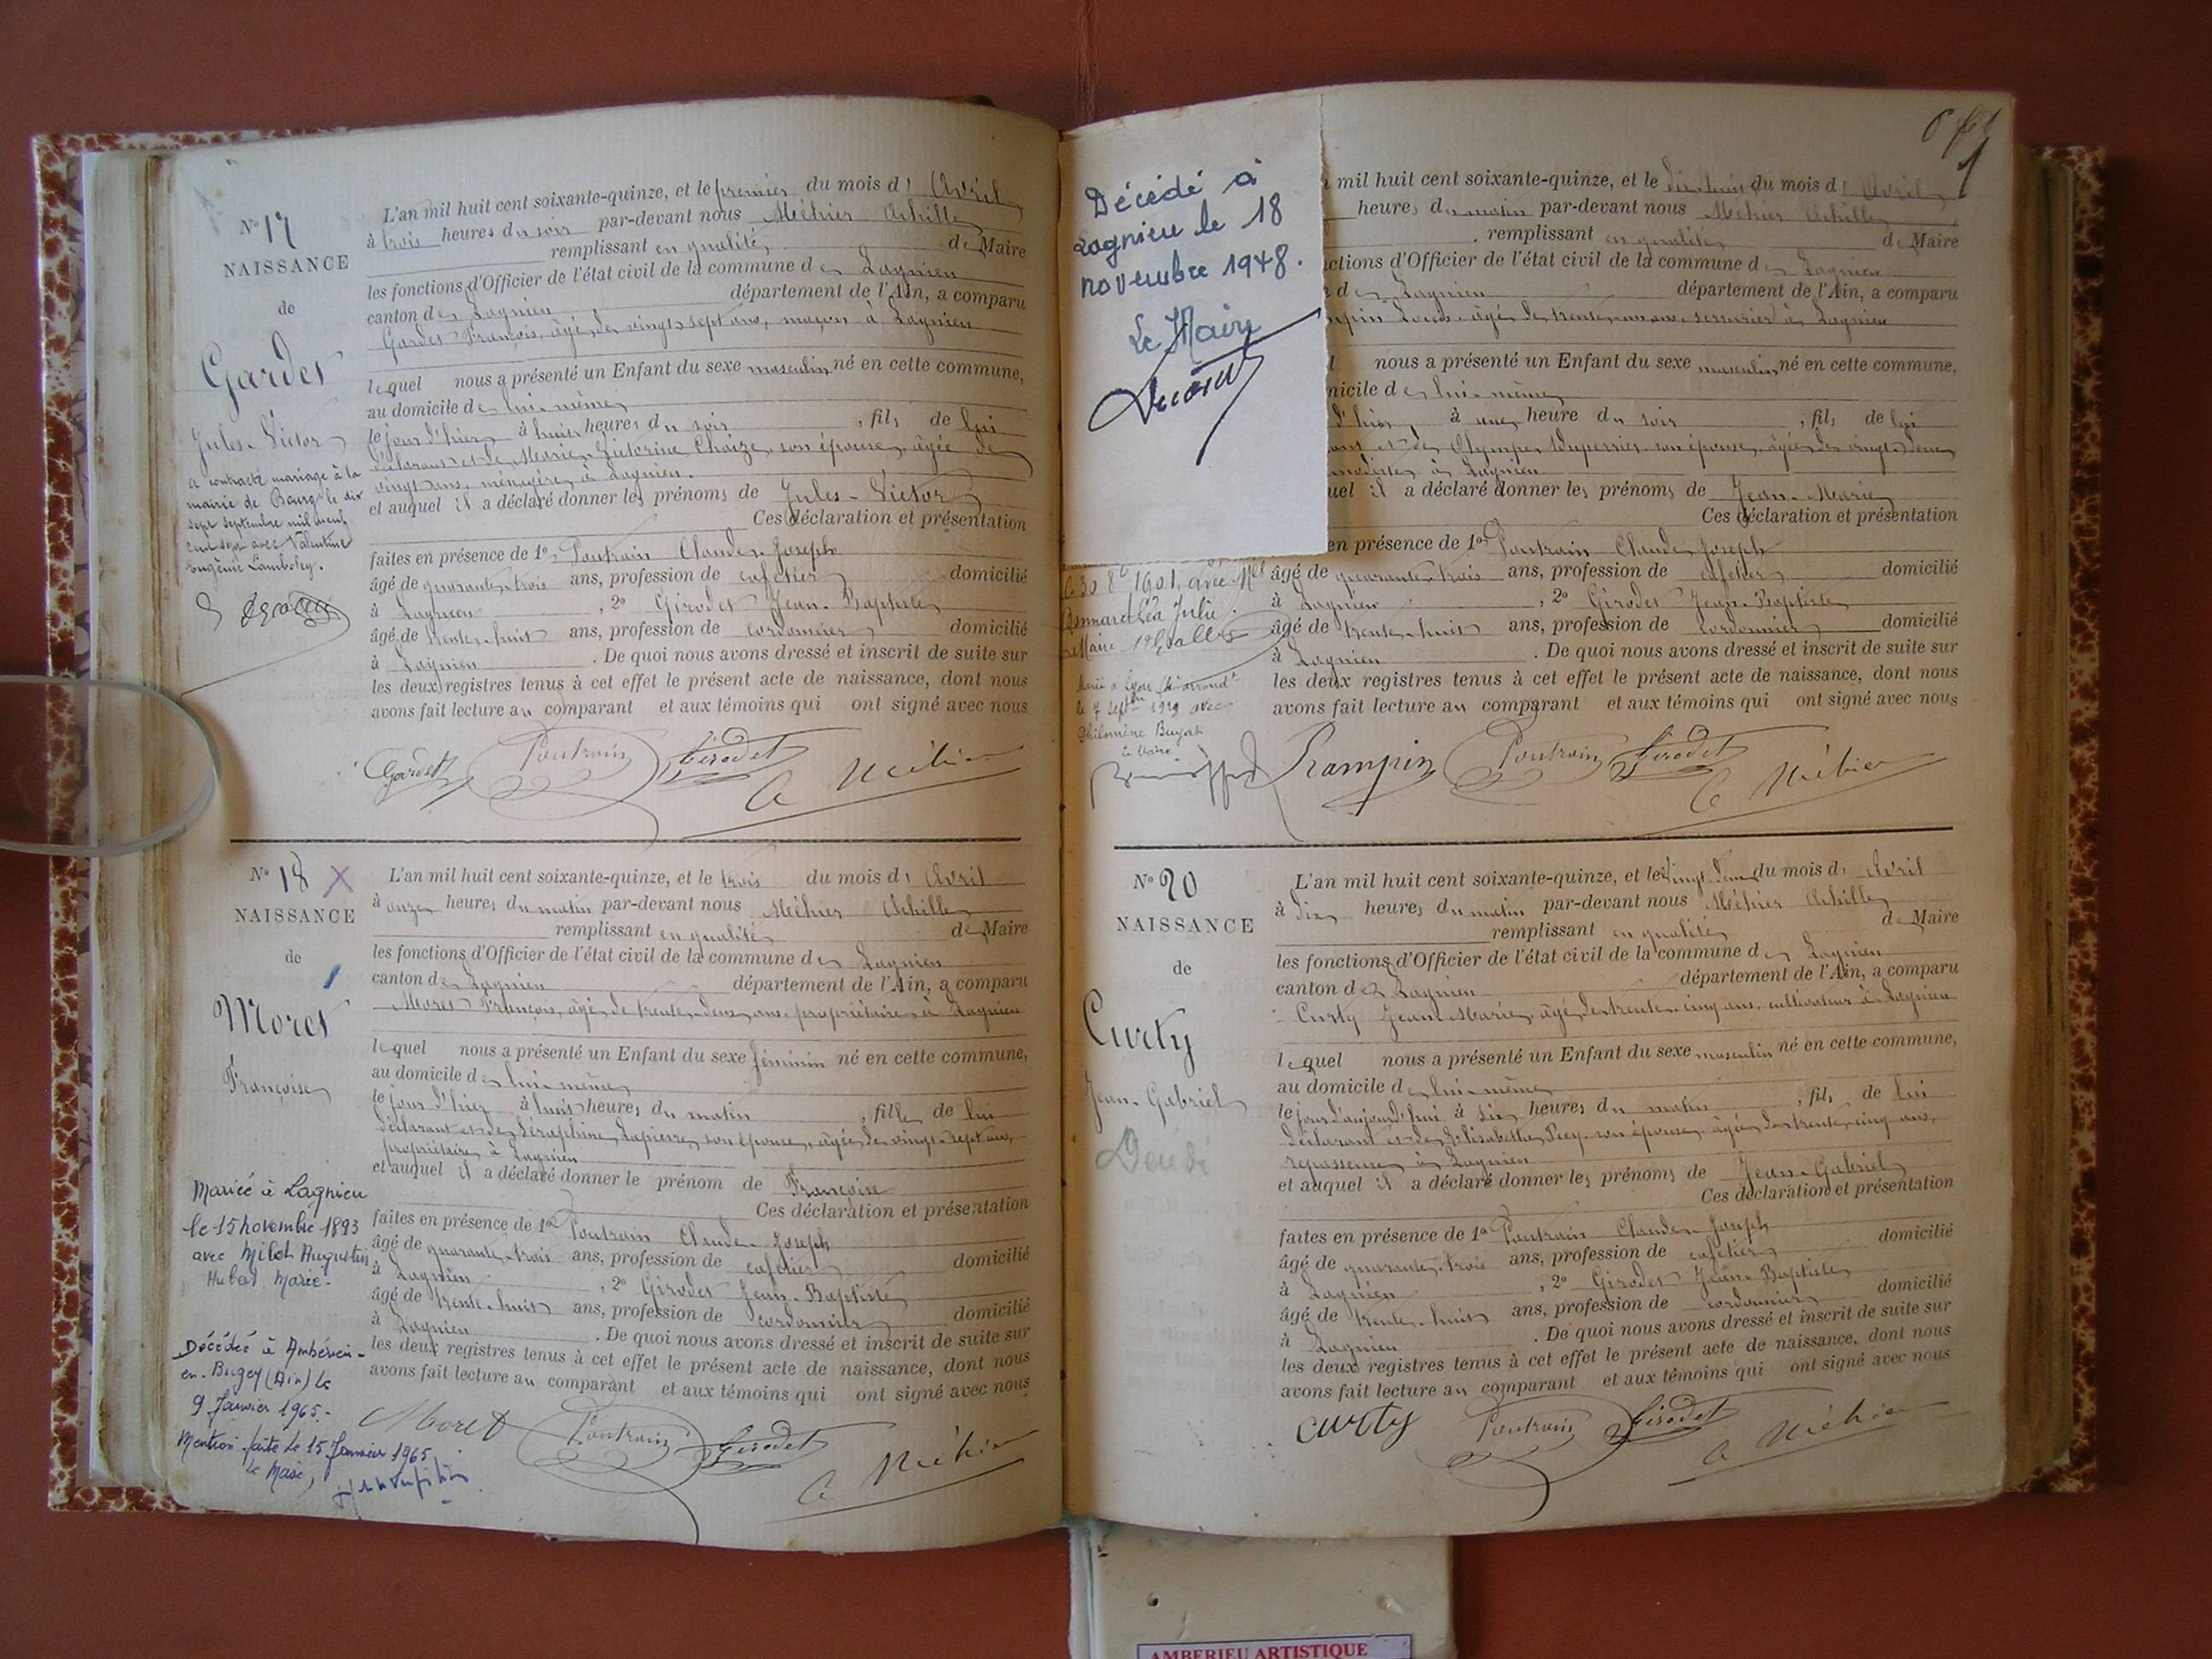 N° 17
NAISSANCE
de
Gardet
Jules-Victor
a contracté mariage à la
mairie de Bourg le dix
sept septembre mil neuf
cent sept avec Valentine
Eugénie Lamboley.
L'an mil huit cent soixante-quinze, et le premier du mois d'Avril
à trois heures du soir par-devant nous Méhier Achille
remplissant en qualité de Maire
les fonctions d'Officier de l'état civil de la commune de Lagnieu
canton de Lagnieu département de l'Ain, a comparu
Gardet François, âgé de vingt sept ans, maçon à Lagnieu
lequel nous a présenté un Enfant du sexe masculin né en cette commune,
au domicile de lui-même
le jour d'hier à huit heures du soir, fils de lui
déclarant et de Marie-Victorine Chaize, son épouse, âgée de
vingt ans, ménagère, à Lagnieu.
et auquel il a déclaré donner les prénoms de Jules-Victor
Ces déclaration et présentation
faites en présence de 1° Poutrain Claude-Joseph
âgé de quarante-trois ans, profession de cafetier domicilié
à Lagnieu, 2° Girodet Jean-Baptiste
âgé de trente-huit ans, profession de cordonnier domicilié
à Lagnieu. De quoi nous avons dressé et inscrit de suite sur
les deux registres tenus à cet effet le présent acte de naissance, dont nous
avons fait lecture au comparant et aux témoins qui ont signé avec nous
Gardet Poutrain Girodet A Méhier
N° 18 X
NAISSANCE
de
Moret
Françoise
Mariée à Lagnieu
le 15 novembre 1893
avec Milet Augustin
Hubert Marie-
Décédée à Ambérieu-
en-Bugey (Ain) le
9 Janvier 1965.-
Mention faite le 15 Janvier 1965
Le Maire,
L'an mil huit cent soixante-quinze, et le trois du mois d'Avril
à onze heures du matin par-devant nous Méhier Achille
remplissant en qualité de Maire
les fonctions d'Officier de l'état civil de la commune de Lagnieu
canton de Lagnieu département de l'Ain, a comparu
Moret François, âgé de trente-deux ans, propriétaire à Lagnieu
lequel nous a présenté un Enfant du sexe féminin né en cette commune,
au domicile de lui-même
le jour d'hier à huit heures du matin, fille de lui
déclarant et de Séraphine Lapierre, son épouse, âgée de vingt-sept ans,
propriétaire à Lagnieu
et auquel il a déclaré donner le prénom de Françoise
Ces déclaration et présentation
faites en présence de 1° Poutrain Claude-Joseph
âgé de quarante-trois ans, profession de cafetier domicilié
à Lagnieu, 2° Girodet Jean-Baptiste
âgé de trente-huit ans, profession de cordonnier domicilié
à Lagnieu. De quoi nous avons dressé et inscrit de suite sur
les deux registres tenus à cet effet le présent acte de naissance, dont nous
avons fait lecture au comparant et aux témoins qui ont signé avec nous
Moret Poutrain Girodet A Méhier
Décédé à
Lagnieu le 18
novembre 1948.
Le Maire
Léa Julie
Maire
Marié à Lyon arrondt
le 7 septbre 1929 avec
Philomène Buyat
le Maire
mil huit cent soixante-quinze, et le dix-huit du mois d'Avril
heures du matin par-devant nous Méhier Achille
remplissant en qualité de Maire
ctions d'Officier de l'état civil de la commune de Lagnieu
de Lagnieu département de l'Ain, a comparu
mpin Louis, âgé de trente-un ans, serrurier à Lagnieu
nous a présenté un Enfant du sexe masculin né en cette commune,
micile de lui-même
d'hier, à une heure du soir, fils de lui
ant et de Olympe Duperrier son épouse, âgée de vingt-deux
modiste à Lagnieu
uel il a déclaré donner les prénoms de Jean-Marie
Ces déclaration et présentation
en présence de 1° Poutrain Claude Joseph
âgé de quarante-trois ans, profession de cafetier domicilié
à Lagnieu, 2° Girodet Jean-Baptiste
âgé de trente-huit ans, profession de cordonnier domicilié
à Lagnieu. De quoi nous avons dressé et inscrit de suite sur
les deux registres tenus à cet effet le présent acte de naissance, dont nous
avons fait lecture au comparant et aux témoins qui ont signé avec nous
Rampin Poutrain Girodet A Méhier
N° 20
NAISSANCE
de
Curty
Jean-Gabriel
L'an mil huit cent soixante-quinze, et le vingt deux du mois d'Avril
à dix heures du matin par-devant nous Méhier Achille
remplissant en qualité de Maire
les fonctions d'Officier de l'état civil de la commune de Lagnieu
canton de Lagnieu département de l'Ain, a comparu
Curty Jean-Marie, âgé de trente-cinq ans, cultivateur à Lagnieu
lequel nous a présenté un Enfant du sexe masculin né en cette commune,
au domicile de lui-même
le jour d'aujourd'hui à six heures du matin, fils de lui
déclarant et de Elisabeth Pecy son épouse, âgée de trente-cinq ans,
repasseuse à Lagnieu
et auquel il a déclaré donner les prénoms de Jean-Gabriel
Ces déclaration et présentation
faites en présence de 1° Poutrain Claude-Joseph
âgé de quarante-trois ans, profession de cafetier domicilié
à Lagnieu, 2° Girodet Jean-Baptiste
âgé de trente-huit ans, profession de cordonnier domicilié
à Lagnieu. De quoi nous avons dressé et inscrit de suite sur
les deux registres tenus à cet effet le présent acte de naissance, dont nous
avons fait lecture au comparant et aux témoins qui ont signé avec nous
Curty Poutrain Girodet A Méhier
AMBERIEU ARTISTIQUE